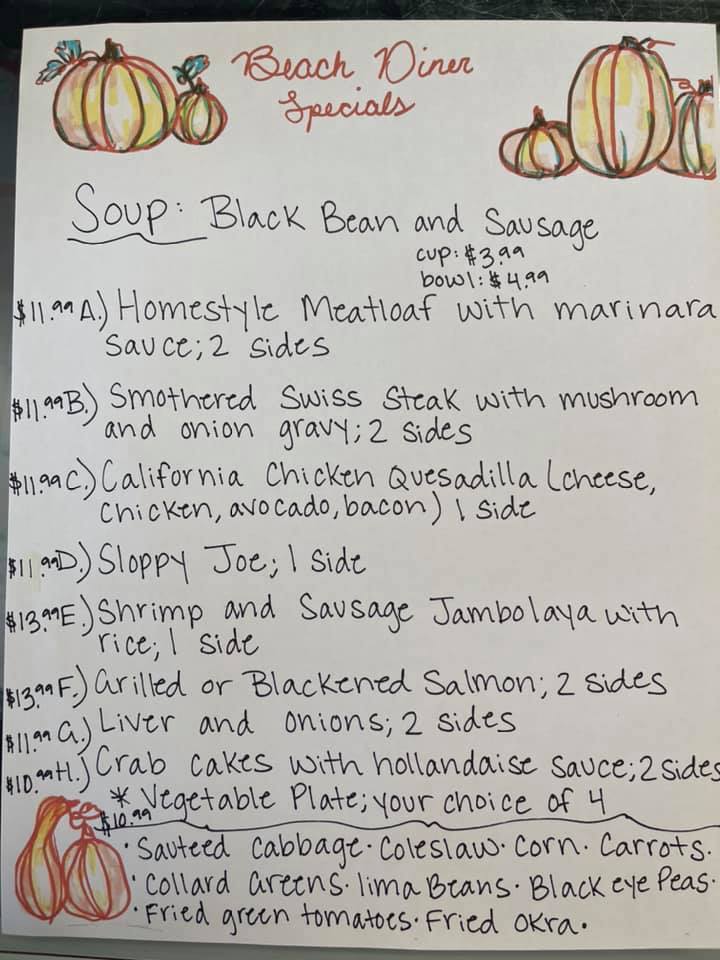 Beach Diner
Specials
Soup: Black Bean and Sausage
cup: $3.99
bowl: $4.99
$11.99 A.) Homestyle Meatloaf with marinara
sauce; 2 sides
$11.99 B.) Smothered Swiss Steak with mushroom
and onion gravy; 2 sides
$11.99 C.) California Chicken Quesadilla (cheese,
chicken, avocado, bacon) 1 side
$11.99 D.) Sloppy Joe; 1 side
$13.99 E.) Shrimp and Sausage Jambolaya with
rice; 1 side
$13.99 F.) Grilled or Blackened Salmon; 2 sides
$11.99 G.) Liver and onions; 2 sides
$10.99 H.) Crab cakes with hollandaise sauce; 2 sides
* Vegetable Plate; your choice of 4
$10.99
· Sauteed cabbage · Coleslaw · Corn · Carrots ·
· Collard Greens · lima Beans · Black eye Peas ·
· Fried green tomatoes · Fried Okra ·